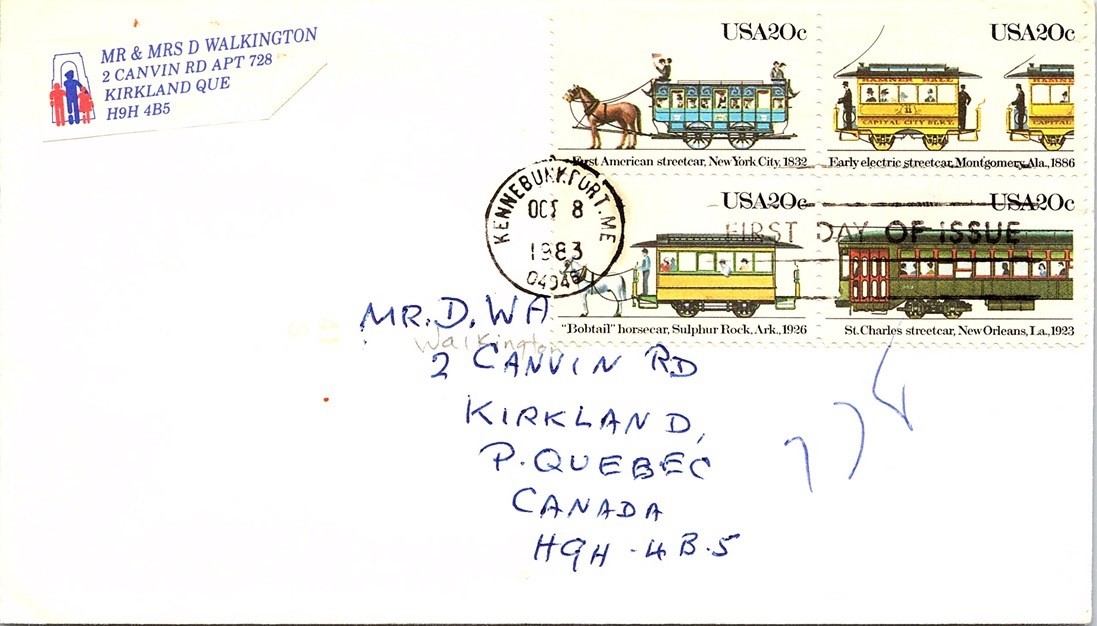 MR & MRS D WALKINGTON
2 CANVIN RD APT 728
KIRKLAND QUE
H9H 4B5
USA20c
First American streetcar, New York City, 1832
USA20c
HAMNER HALL
CAPITAL CITY ST. R'Y.
Early electric streetcar, Montgomery, Ala., 1886
HAMNE
CAPITAL
USA20c
"Bobtail" horsecar, Sulphur Rock, Ark., 1926
USA20c
St. Charles streetcar, New Orleans, La., 1923
KENNEBUNKPORT, ME
OCT 8
1983
04046
FIRST DAY OF ISSUE
MR. D. WA
Walkington
2 CANVIN RD
KIRKLAND,
P. QUEBEC
CANADA
H9H-4B.5